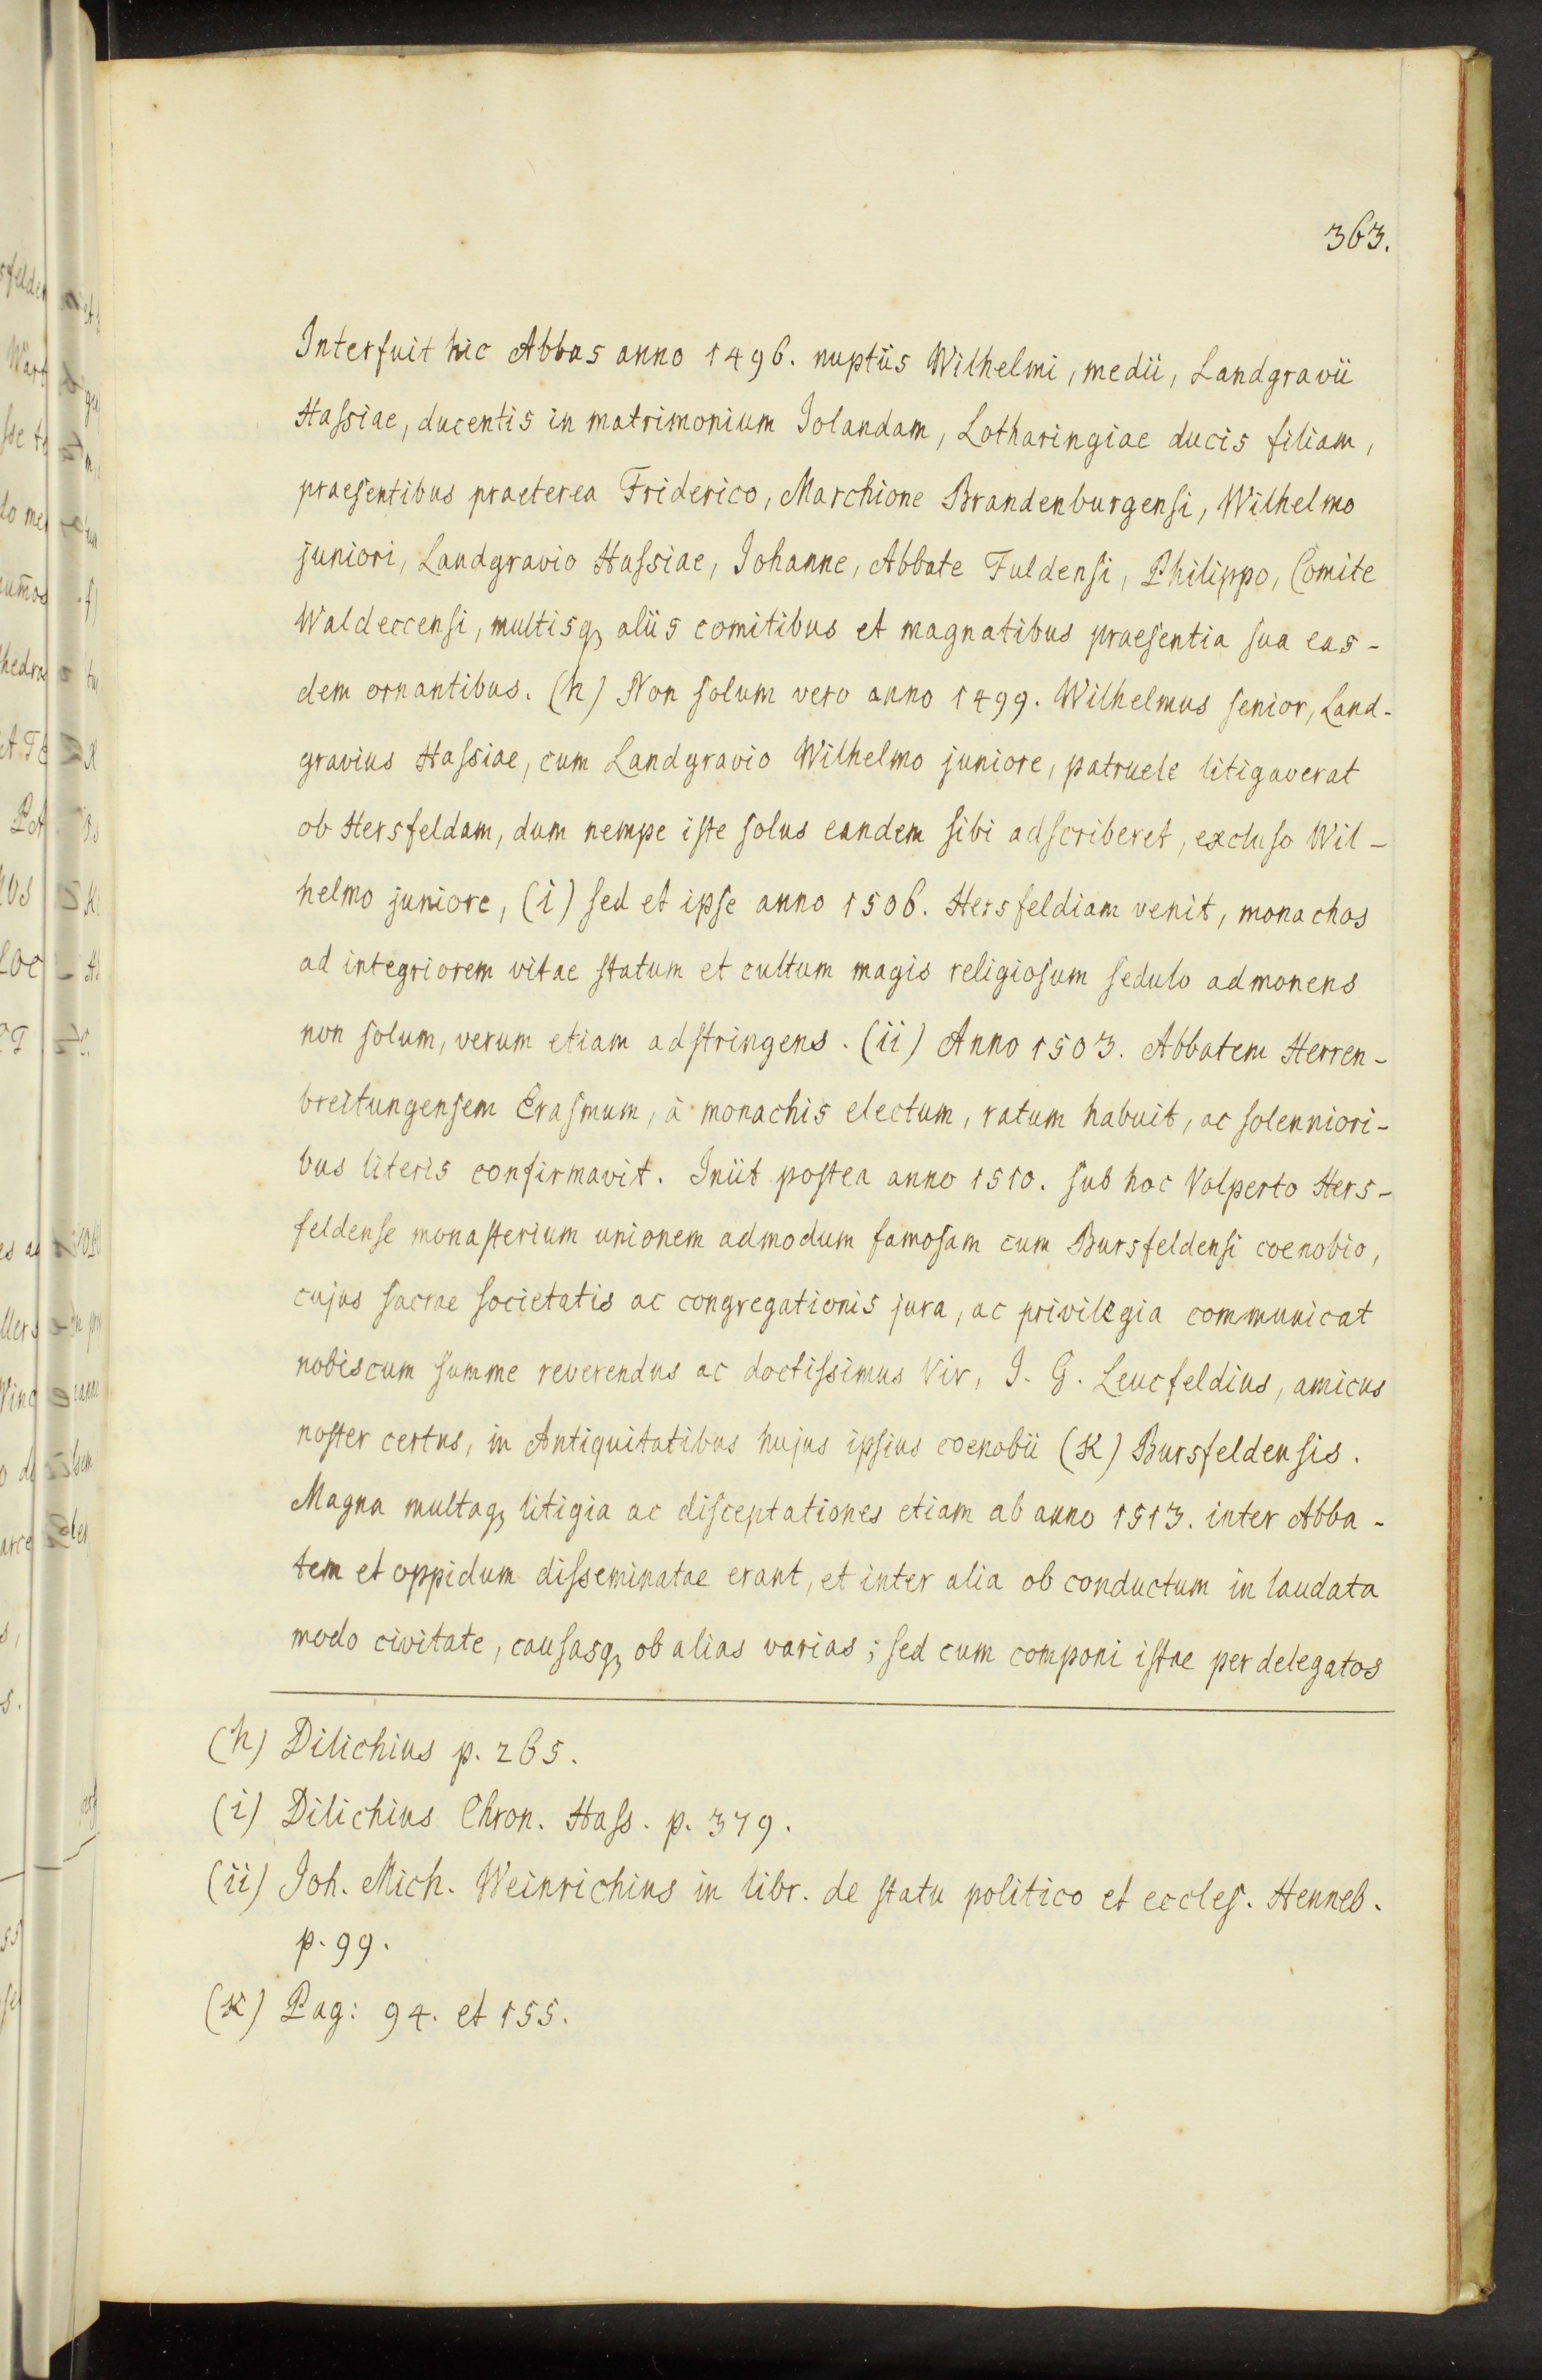 363.
Interfuit hic Abbas anno 1496. nuptiis Wilhelmi, medii, Landgravii
Hassiae, ducentis in matrimonium Jolandam, Lotharingiae ducis filiam,
praesentibus praeterea Friderico, Marchione Brandenburgensi, Wilhelmo
juniori, Landgravio Hassiae, Johanne, Abbate Fuldensi, Philippo, Comite
Waldeccensi, multisq; aliis comitibus et magnatibus praesentia sua eas-
dem ornantibus. (h) Non solum vero anno 1499. Wilhelmus senior, Land-
gravius Hassiae, cum Landgravio Wilhelmo juniore, patruele litigaverat
ob Hersfeldam, dum nempe iste solus eandem sibi adscriberet, excluso Wil-
helmo juniore, (i) sed et ipse anno 1506. Hersfeldiam venit, monachos
ad integriorem vitae statum et cultum magis religiosum sedulo admonens
non solum, verum etiam adstringens. (ii) Anno 1503. Abbatem Herren-
breitungensem Erasmum, à monachis electum, ratum habuit, ac solenniori-
bus literis confirmavit. Iniit postea anno 1510. sub hoc Volperto Hers-
feldense monasterium unionem admodum famosam cum Bursfeldensi coenobio,
cujus sacrae societatis ac congregationis jura, ac privilegia communicat
nobiscum summe reverendus ac doctissimus Vir, J. G. Leucfeldius, amicus
noster certus, in Antiquitatibus hujus ipsius coenobii (K) Bursfeldensis.
Magna multaq; litigia ac disceptationes etiam ab anno 1513. inter Abba-
tem et oppidum disseminatae erant, et inter alia ob conductum in laudata
modo civitate, causasq; ob alias varias; sed cum componi istae per delegatos
(h) Dilichius p. 265.
(i) Dilichius Chron. Hass. p. 379.
(ii) Joh. Mich. Weinrichius in libr. de statu politico et eccles. Henneb.
p. 99.
(K) Pag: 94. et 155.